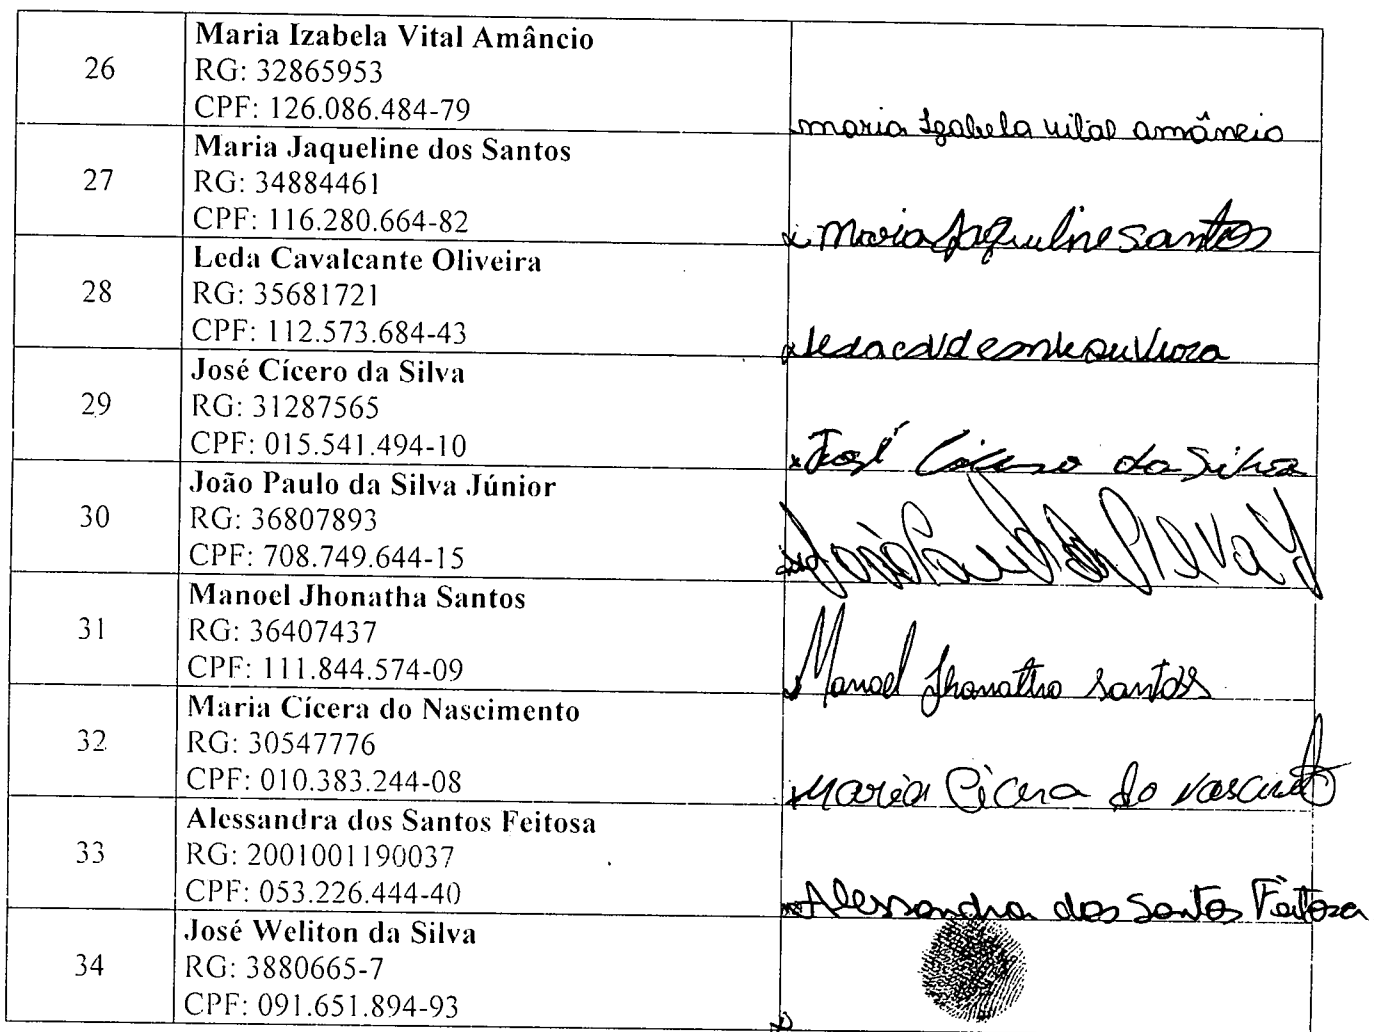 26
Maria Izabela Vital Amâncio
RG: 32865953
CPF: 126.086.484-79
maria Izabela vital amâncio
27
Maria Jaqueline dos Santos
RG: 34884461
CPF: 116.280.664-82
x Maria Jaqueline santos
28
Leda Cavalcante Oliveira
RG: 35681721
CPF: 112.573.684-43
x leda
29
José Cícero da Silva
RG: 31287565
CPF: 015.541.494-10
x José Cícero da Silva
30
João Paulo da Silva Júnior
RG: 36807893
CPF: 708.749.644-15
João Paulo da Silva J
31
Manoel Jhonatha Santos
RG: 36407437
CPF: 111.844.574-09
x Manoel Jhonatha santos
32
Maria Cícera do Nascimento
RG: 30547776
CPF: 010.383.244-08
x Maria Cícera do
33
Alessandra dos Santos Feitosa
RG: 2001001190037
CPF: 053.226.444-40
Alessandra dos Santos Feitosa
34
José Weliton da Silva
RG: 3880665-7
CPF: 091.651.894-93
x